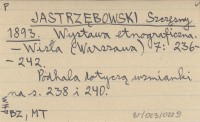 P
JASTRZĘBOWSKI Szczęsny
1893. Wystawa etnograficzna.
— Wisła (Warszawa) 7: 236-
- 242.
Podhala dotyczą wzmianki
na s. 238 i 240.
BZ, MT